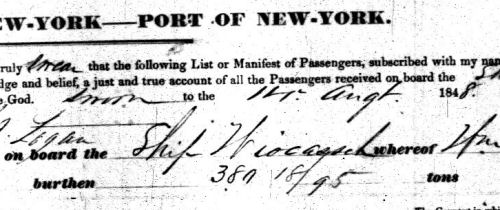 EW-YORK—PORT OF NEW-YORK.
truly swear that the following List or Manifest of Passengers, subscribed with my nam
dge and belief, a just and true account of all the Passengers received on board the
e God. sworn to the Augt. 1848.
Logan
on board the Ship whereof Wm
burthen 380 18/95 tons